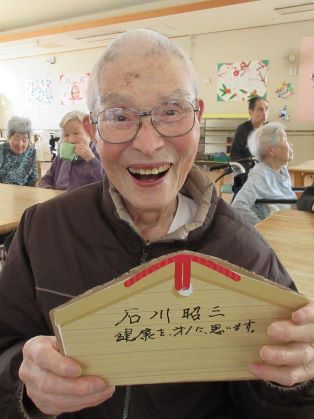 石川昭三
健康を、オノに、思います。